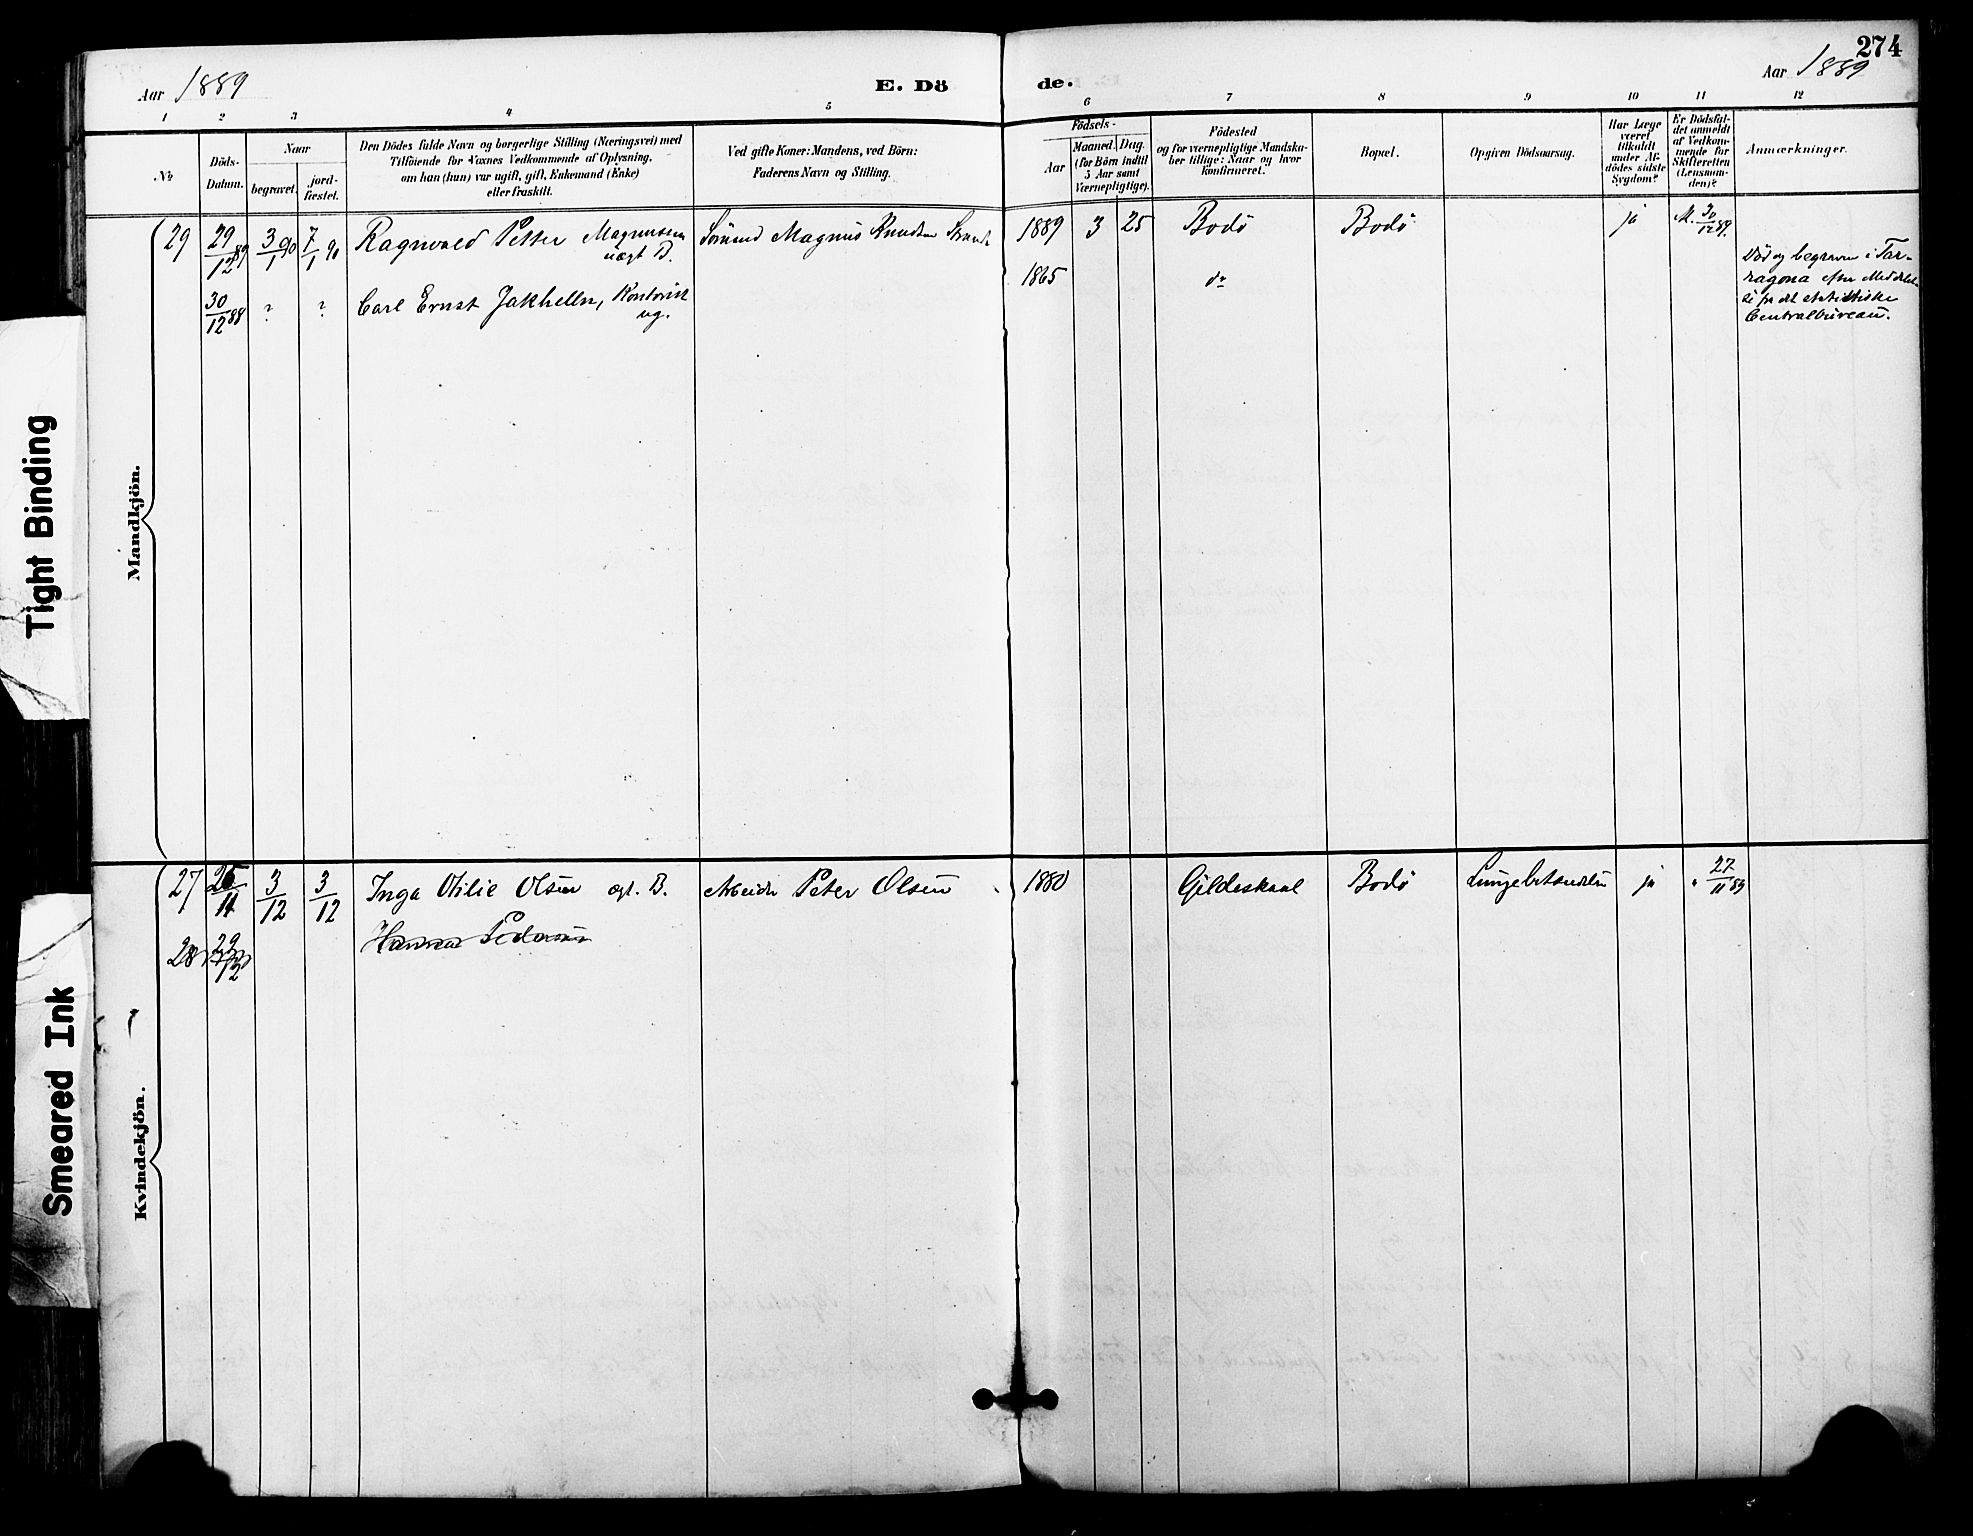 274
Aar 1889
E. Dö
de.
Aar 1889
1 2 3 4 5 6 7 8 9 10 11 12
No
Döds-
Datum.
Naar
begravet.
jord-
fæstet.
Den Dödes fulde Navn og borgerlige Stilling (Næringsvei) med
Tilföiende for Voxnes Vedkommende af Oplysning,
om han (hun) var ugift, gift, Enkemand (Enke)
eller fraskilt.
Ved gifte Koner: Mandens, ved Börn:
Faderens Navn og Stilling.
Födsels-
Aar
Maaned. Dag.
(for Börn indtil
5 Aar samt
Værnepligtige).
Födested
og for værnepligtige Mandska-
ber tillige: Naar og hvor
konfirmeret.
Bopæl.
Opgiven Dödsaarsag.
Har Læge
været
tilkaldt
under Af-
dödes sidste
Sygdom?
Er Dödsfal-
det anmeldt
af Vedkom-
mende for
Skifteretten
(Lensman-
den)?
Anmærkninger.
Mandkjön.
29 29/12 89 3/1 90 7/1 90 Ragnvald Petter Magnussen Sömand Magnus Knudsen 1889 3 25 Bodö Bodö ja M. 30/12 89.
uægt B.
30/12 88 ? ? Carl Ernst Jakhelln, Kontorist 1865 do
ug.
Död og begraven i Tar-
ragona efter Meddelel-
se fra det statistiske
Centralbureau.
Kvindekjön.
27 3/12 3/12 Inga Otilie Olsen ægt. B. Arbeider Peter Olsen 1880 Gildeskaal Bodö Lungebetændelse ja " 27/11 89
28 Hanna Pedersen
Tight Binding
Smeared Ink